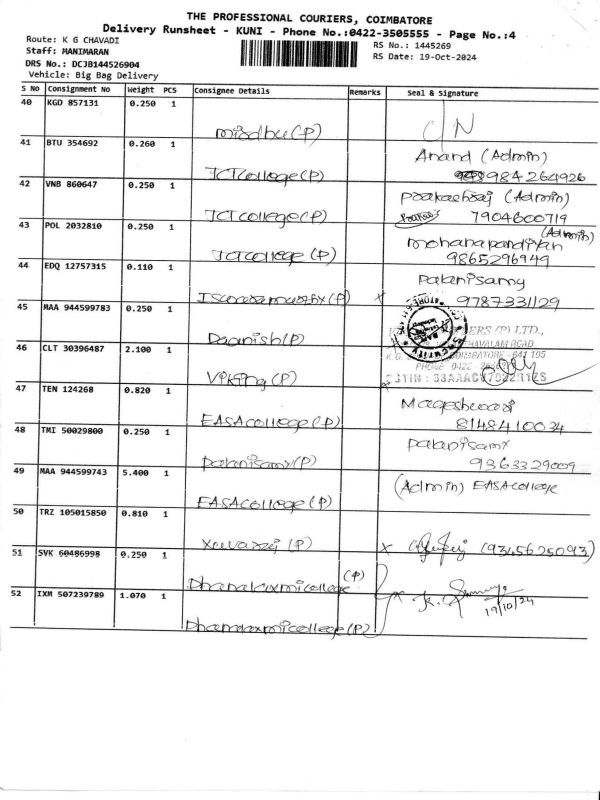 THE PROFESSIONAL COURIERS, COIMBATORE
Delivery Runsheet - KUNI - Phone No.:0422-3505555 - Page No.:4
Route: K G CHAVADI
RS No.: 1445269
Staff: MANIMARAN
RS Date: 19-Oct-2024
DRS No.: DCJB144526904
Vehicle: Big Bag Delivery
S No Consignment No Weight PCS Consignee Details Remarks Seal & Signature
40 KGD 857131 0.250 1
(P)
41 BTU 354692 0.260 1
Anand (Admin)
ICTCollege(P)
984264926
42 VNB 860647 0.250 1
(Admin)
ICTcollege(P) 7904600719
43 POL 2032810 0.250 1
(Admin)
mohanapandiyan
ICTcollege (P) 9865296949
44 EDQ 12757315 0.110 1
Palanisamy
(P) x 9787331129
45 MAA 944599783 0.250 1
(P) LTD.,
Daanish(P)
46 CLT 30396487 2.100 1
COIMBATORE - 641 105
PHONE 0422
Viking(P)
47 TEN 124268 0.820 1
Mageshwari
EASAcollege(P) 8148410034
48 TMI 50029800 0.250 1
Palanisamy
Palanisamy(P) 9363329009
49 MAA 944599743 5.400 1
(Admin) EASACollege
EASACollege(P)
50 TRZ 105015850 0.810 1
(P) x (9345625093)
51 SVK 60486998 0.250 1
Dhanalaxmicollege (P)
52 IXM 507239789 1.070 1
x K.
19/10/24
Dhanalaxmicollege(P)